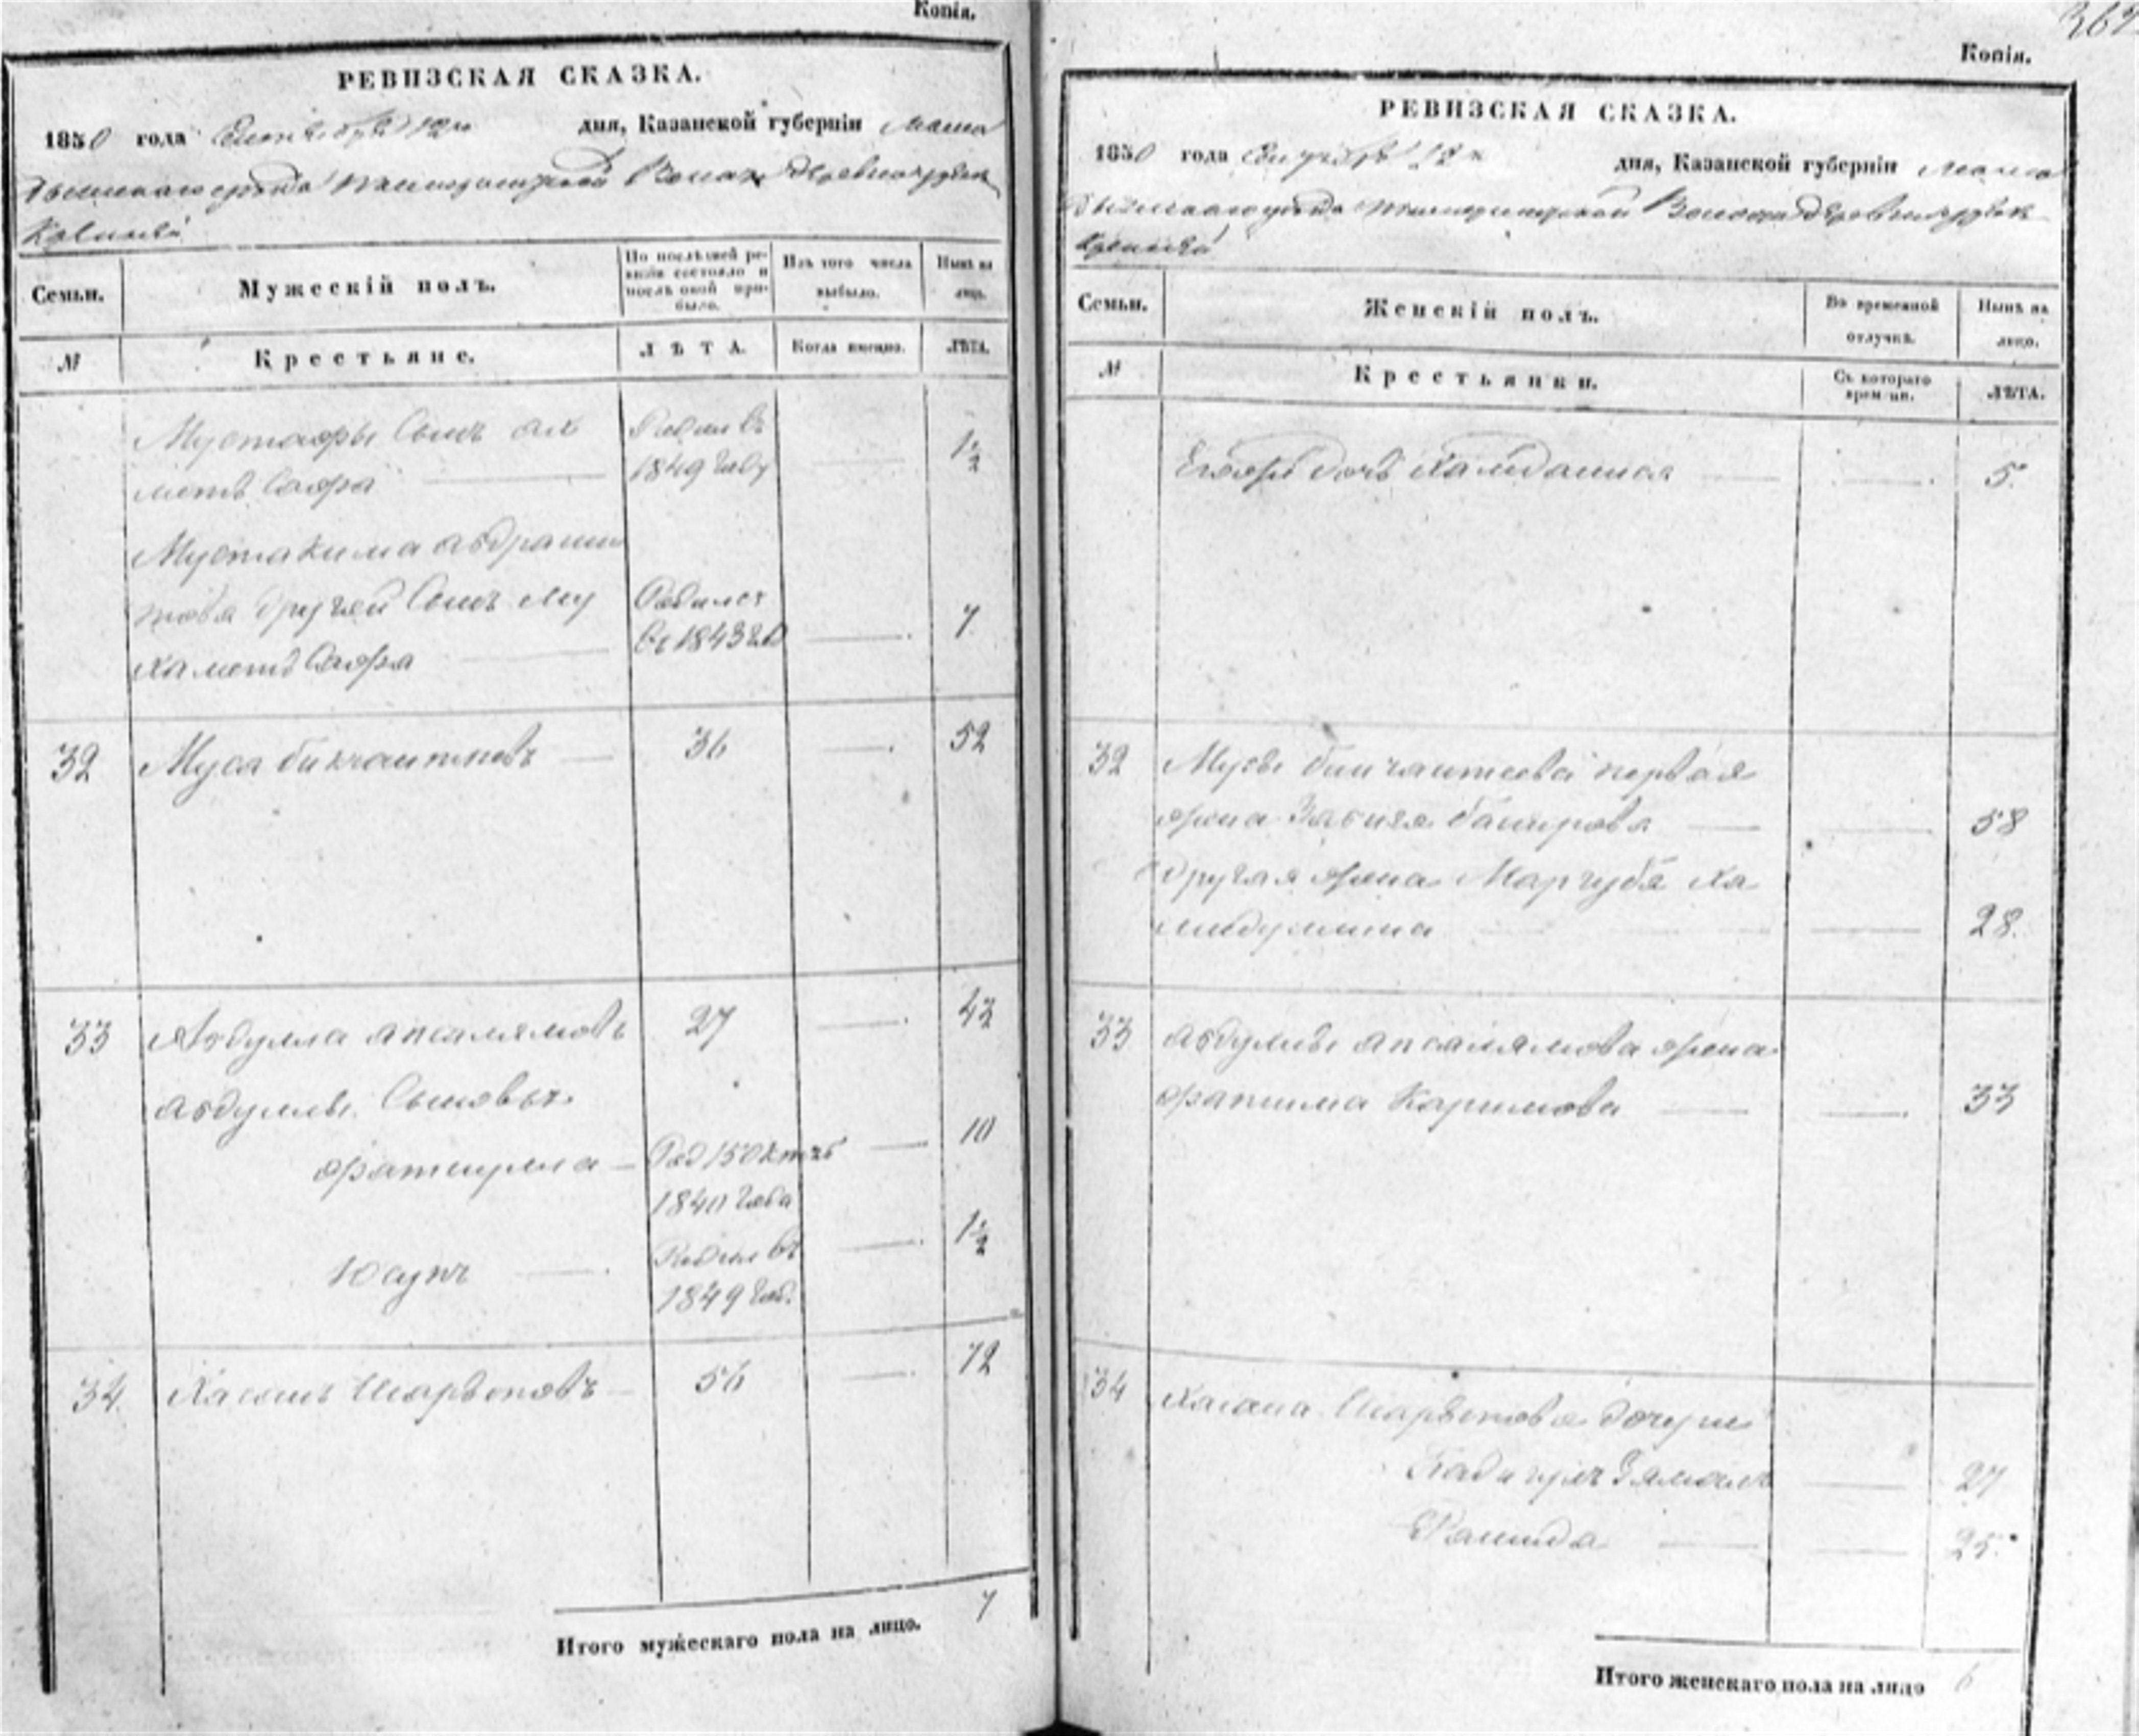 Копія.
РЕВИЗСКАЯ СКАЗКА.
1850 года Сентября 12 дня, Казанской губерніи Мама
дышскаго уѣзда Волости деревни
Семьи.
Мужескій полъ.
По послѣдней ре-
визіи состояло и
послѣ оной при-
было.
Изъ того числа
выбыло.
Нынѣ на
лицо.
№
Крестьяне.
ЛѢТА.
Когда именно.
ЛѢТА.
Мустафы Сынъ ах Родил въ 1½
метъ Сафа 1849 году
Мустакима абдраши
това другой Сынъ му Родился 7
хаметъ Сафа въ 1843 год
32 Муса бикчантаевъ 36 52
33 Абдулла апсалямовъ 27 43
абдуллы Сыновья
фатхулла Род 15 октяб 10
1840 года
Юсупъ Родил въ 1½
1849 год.
34. Хасанъ 56 72
Итого мужескаго пола на лицо. 7
362
Копія.
РЕВИЗСКАЯ СКАЗКА.
1850 года Сентября 12 дня, Казанской губерніи Мама
дышскаго уѣзда Волости деревни
Семьи.
Женскій полъ.
Въ временной
отлучкѣ.
Нынѣ на
лицо.
№
Крестьянки.
Съ котораго
времени.
ЛѢТА.
дочь Хамдания 5.
32 Мусы бикчантаева первая
жена Башрова 58
другая жена Маргуба Ха
мидуллина 28.
33 абдуллы апсалямова жена
фатима Каримова 33
34 Хасана дочери
27
25.
Итого женскаго пола на лицо 6